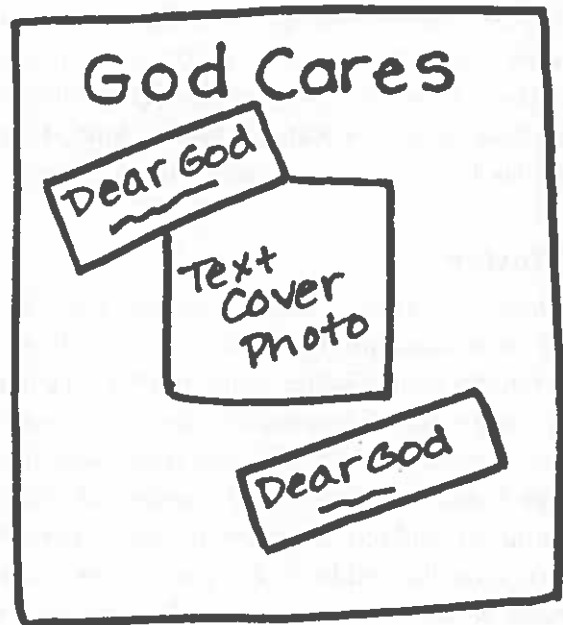 God Cares
Dear God
Text
Cover
Photo
Dear God